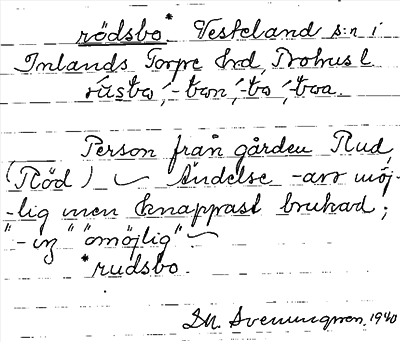 rödsbo * Vesteland s:n i
Inlands Torpe hd, Bohus l
rúsbo, -bon, -bo, -boa.
Person från gården Rud,
(Röd) ~ Ändelse -arr möj-
-lig men knappast brukad;
"-ing" "omöjlig" ~
*rudsbo.
1940